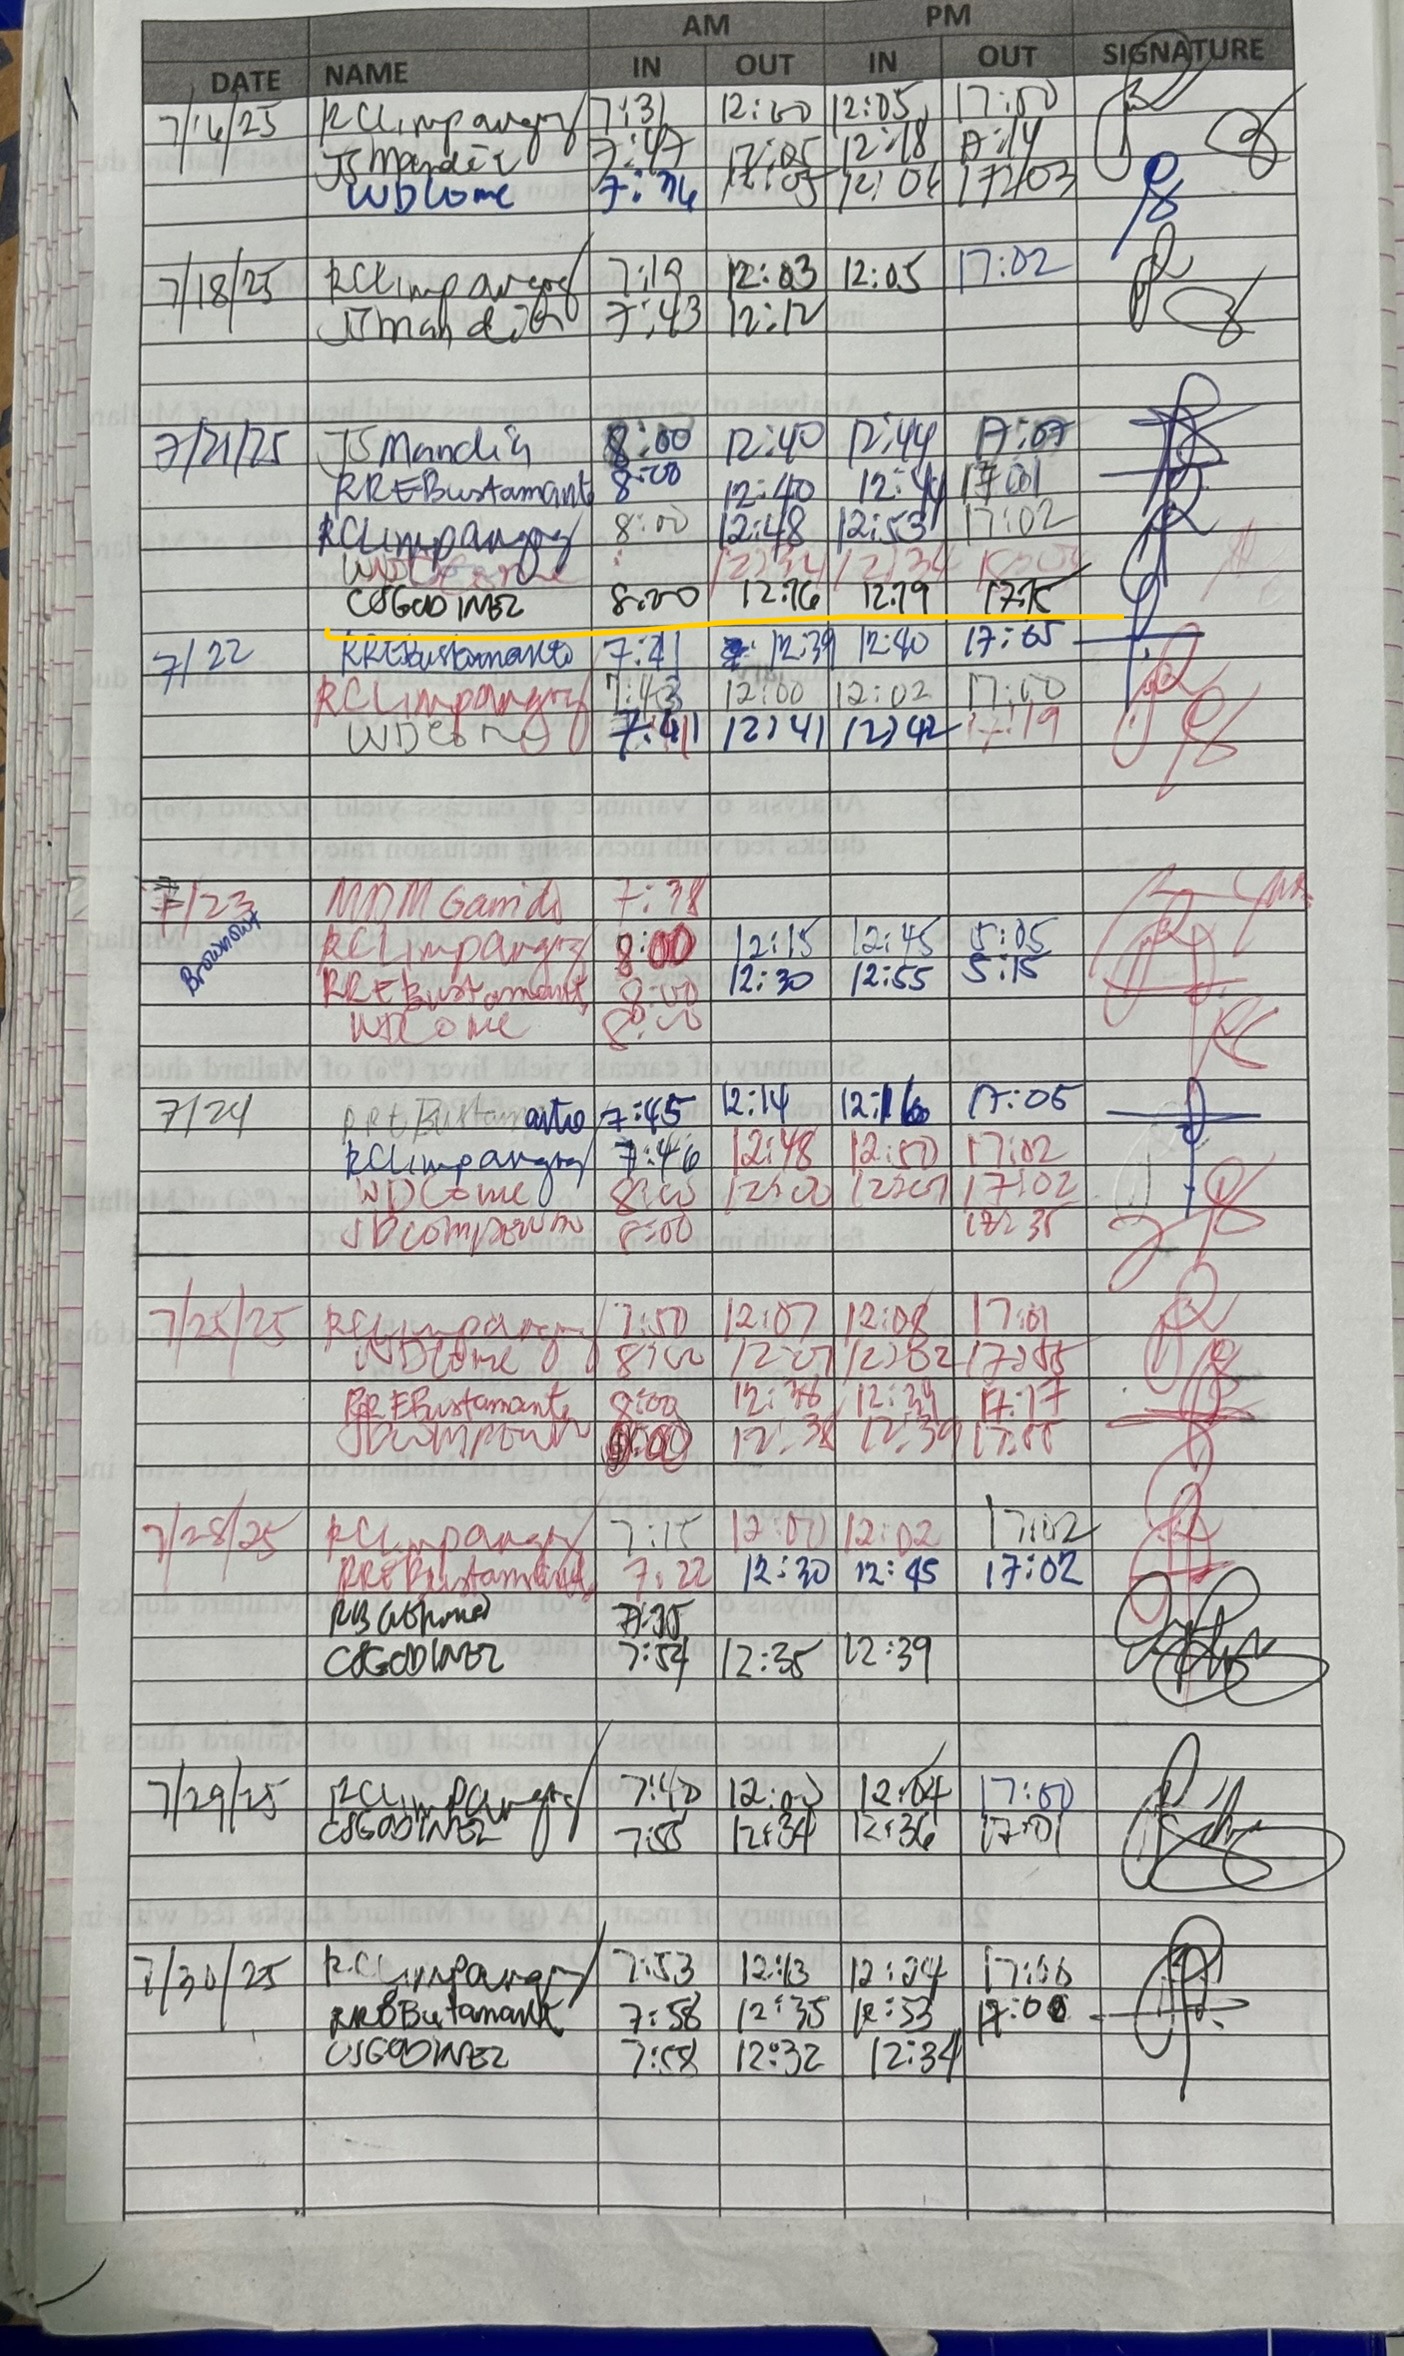 AM PM
DATE NAME IN OUT IN OUT SIGNATURE
7/16/25 RCLimpangog 7:31 12:00 12:05 17:00
JSMandia 7:47 12:05 12:18 17:14
WDCome 7:36 12:05 12:06 17:03
7/18/25 RCLimpangog 7:19 12:03 12:05 17:02
JSMandia 7:43 12:12
7/21/25 JSMandia 8:00 12:40 12:44 17:07
RREBustamante 8:00 12:40 12:44 17:01
RCLimpangog 8:00 12:48 12:53 17:02
WDCome 12:34 12:34
CSGODINEZ 8:00 12:16 12:19 17:15
7/22 RREBustamante 7:41 12:39 12:40 17:05
RCLimpangog 7:43 12:00 12:02 17:00
WDCome 7:41 12:41 12:42 17:19
7/23 MDMGamido 7:38
Brownout RCLimpangog 8:00 12:15 12:45 5:05
RREBustamante 8:00 12:30 12:55 5:15
WDCome 8:00
7/24 RREBustamante 7:45 12:14 12:16 17:05
RCLimpangog 7:46 12:48 12:50 17:02
WDCome 8:00 12:00 12:01 17:02
8:00 17:35
7/25/25 RCLimpangog 7:50 12:07 12:08 17:01
WDCome 8:00 12:01 12:02 17:05
RREBustamante 8:00 12:38 12:39 17:17
8:00 12:38 12:39
7/28/25 RCLimpangog 7:15 12:00 12:02 17:02
RREBustamante 7:22 12:30 12:45 17:02
7:35
CSGODINEZ 7:54 12:35 12:39
7/29/25 RCLimpangog 7:40 12:00 12:04 17:00
CSGODINEZ 7:55 12:34 12:36 17:01
7/30/25 RCLimpangog 7:53 12:13 12:24 17:00
RREBustamante 7:58 12:35 12:53 17:00
CSGODINEZ 7:58 12:32 12:34